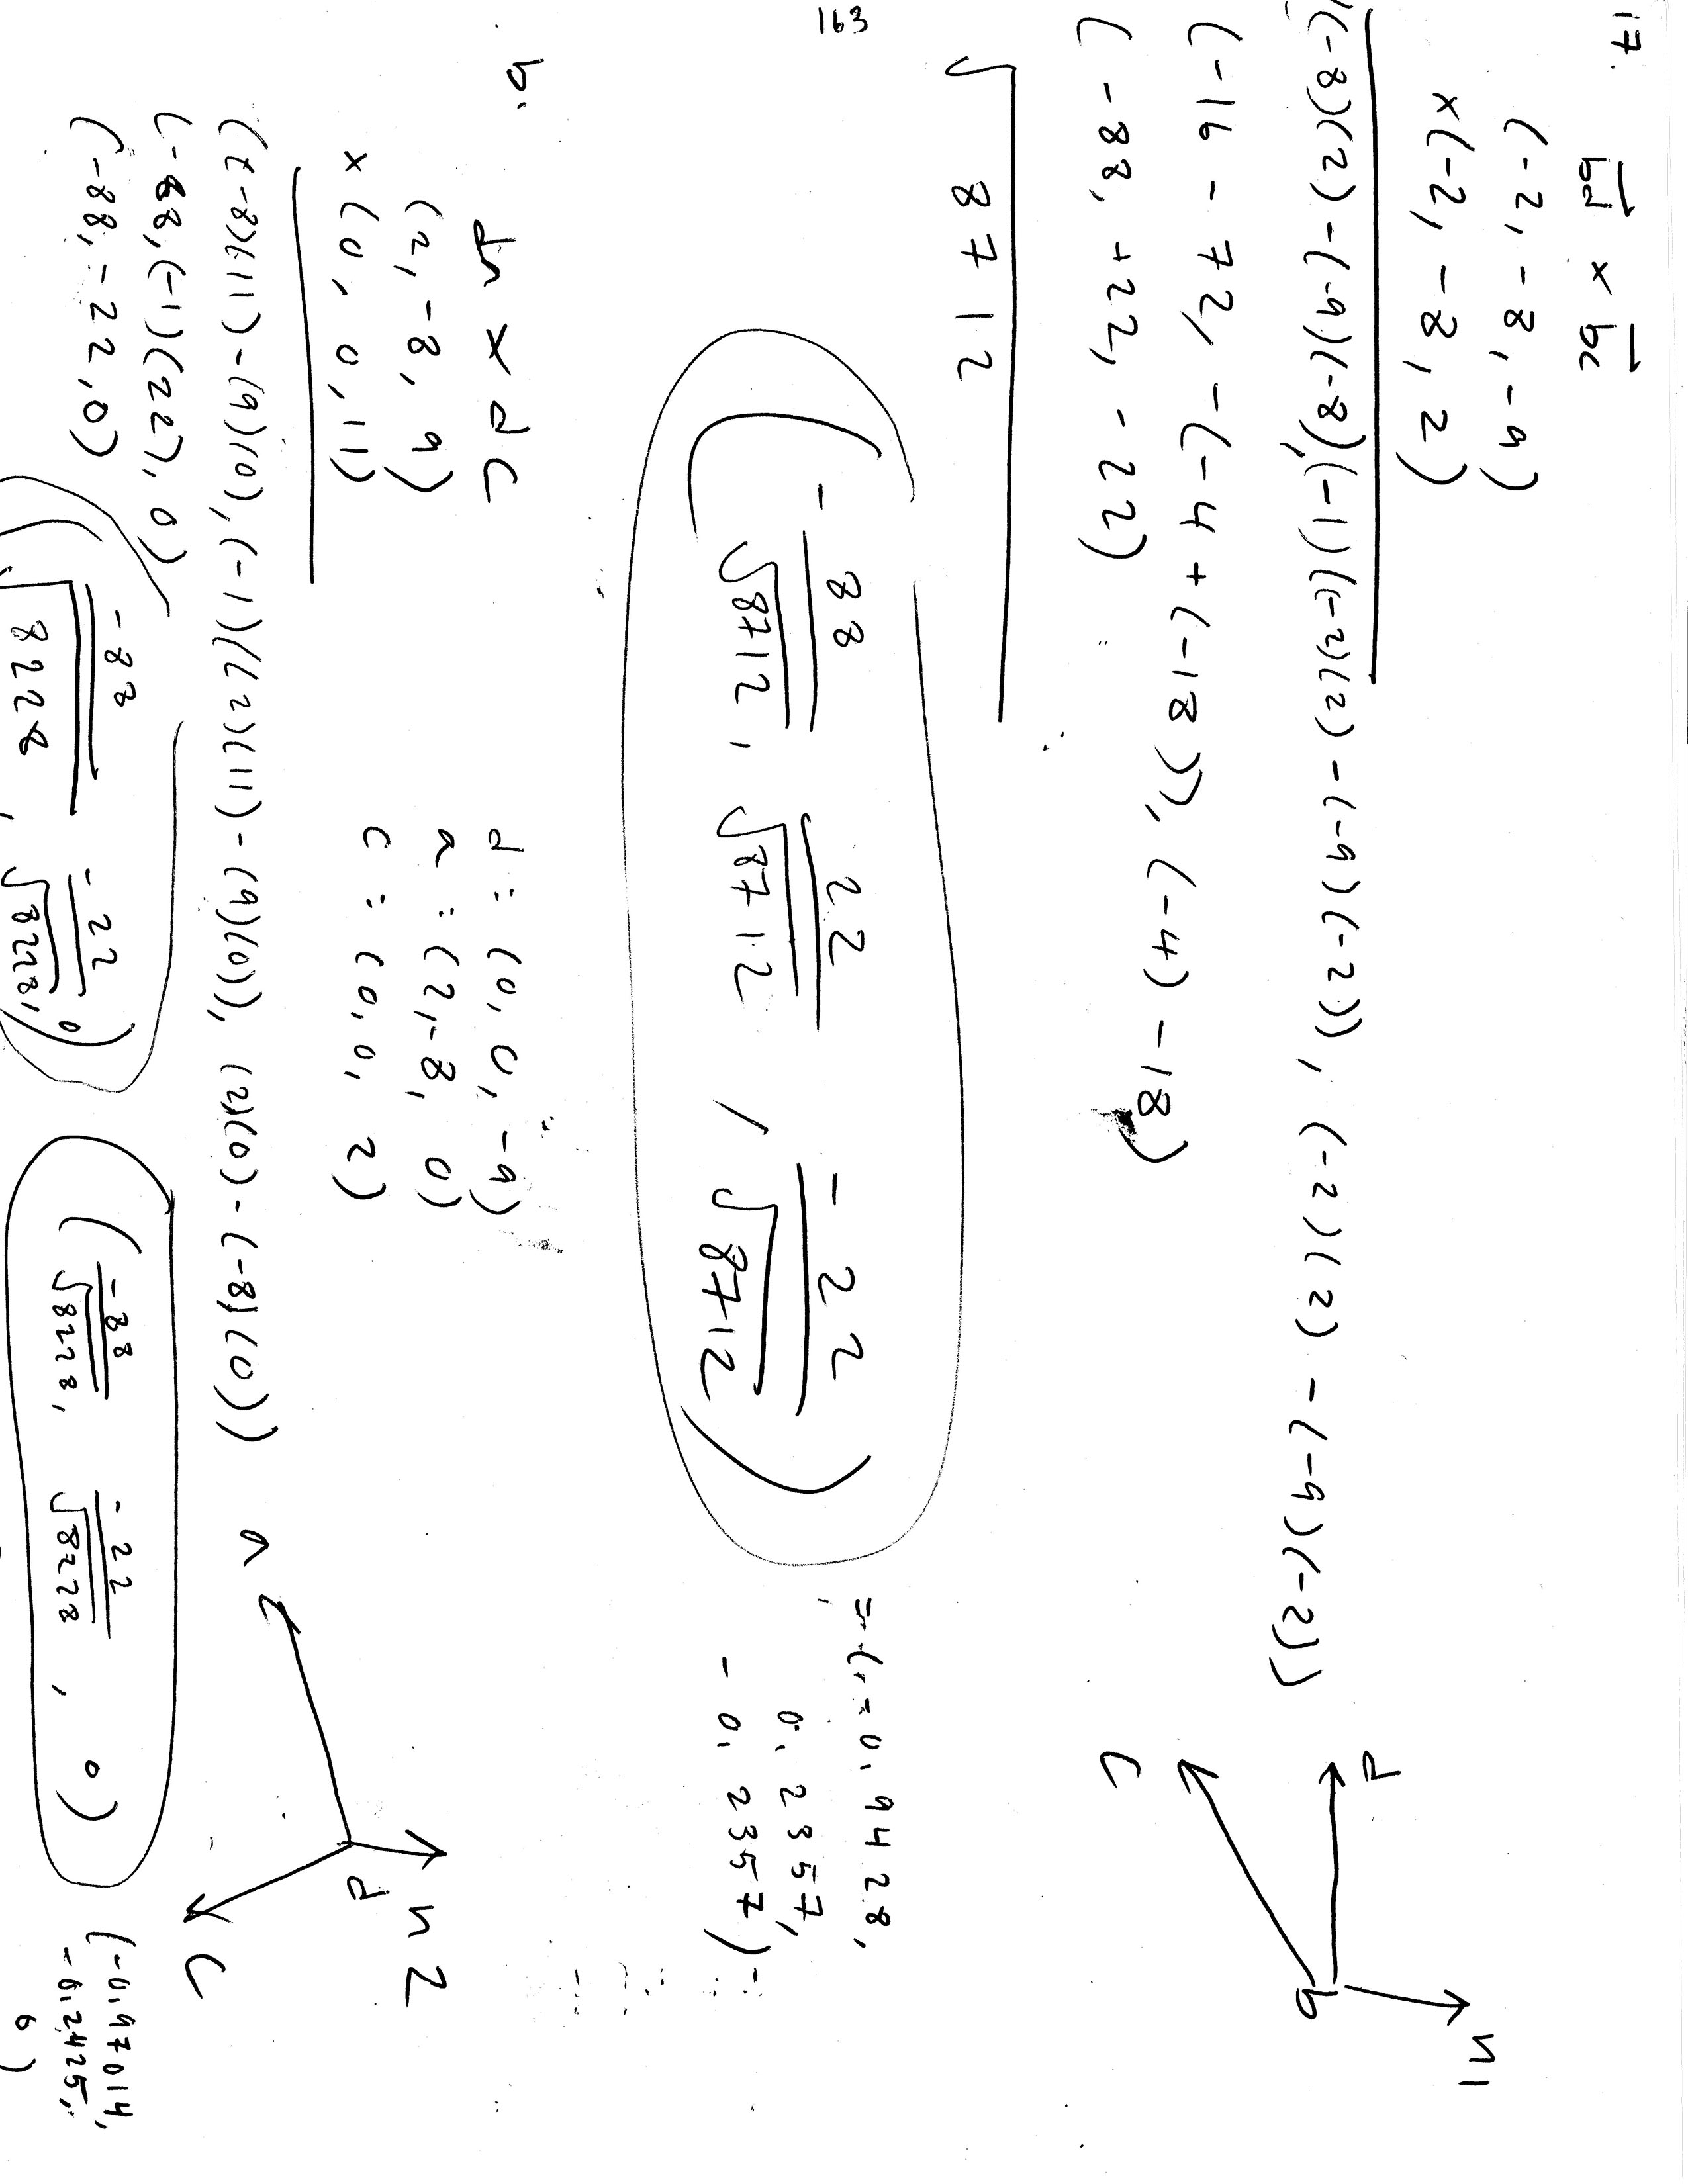 17.
bd x bc
(-2, -8, -9)
x(-2, -8, 2)
((-8)(2) - (-9)(-8), (-1)((-2)(2) - (-9)(-2)), (-2)(2) - (-9)(-2))
(-16 - 72, - (-4 + (-18)), (-4) - 18)
(-88, +22, -22)
√8712
(-88/√8712, 22/√8712, -22/√8712)
= (-0.9428,
0.2357,
-0.2357)
d
c
b
n1
163
b.
da x dc
(2, -8, 9)
x (0, 0, 11)
d: (0, 0, -9)
a: (2, -8, 0)
c: (0, 0, 2)
((-8)(11) - (9)(0), (-1)((2)(11) - (9)(0)), (2)(0) - (-8)(0))
(-88, (-1)(22), 0)
(-88, -22, 0)
(-88/√8228, -22/√8228, 0)
(-88/√8228, -22/√8228, 0)
(-0.97014,
-0.2425,
0)
a
d
c
n2